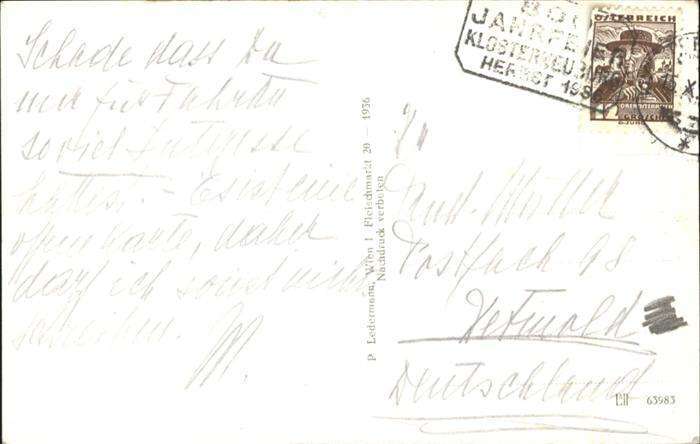 Schade dass Du
nur für Fahrten
soviel Interesse
hattest. - Es ist eine
offene Karte, daher
darf ich sonst nichts
schreiben.
M.
P. Ledermann, Wien I, Fleischmarkt 20 — 1936
Nachdruck verboten
JAHRFEIER
KLOSTERNEUBURG
HERBST 1936
ÖSTERREICH
GROSCHEN
Müller
Postfach 98
Detmold
Deutschland
63983